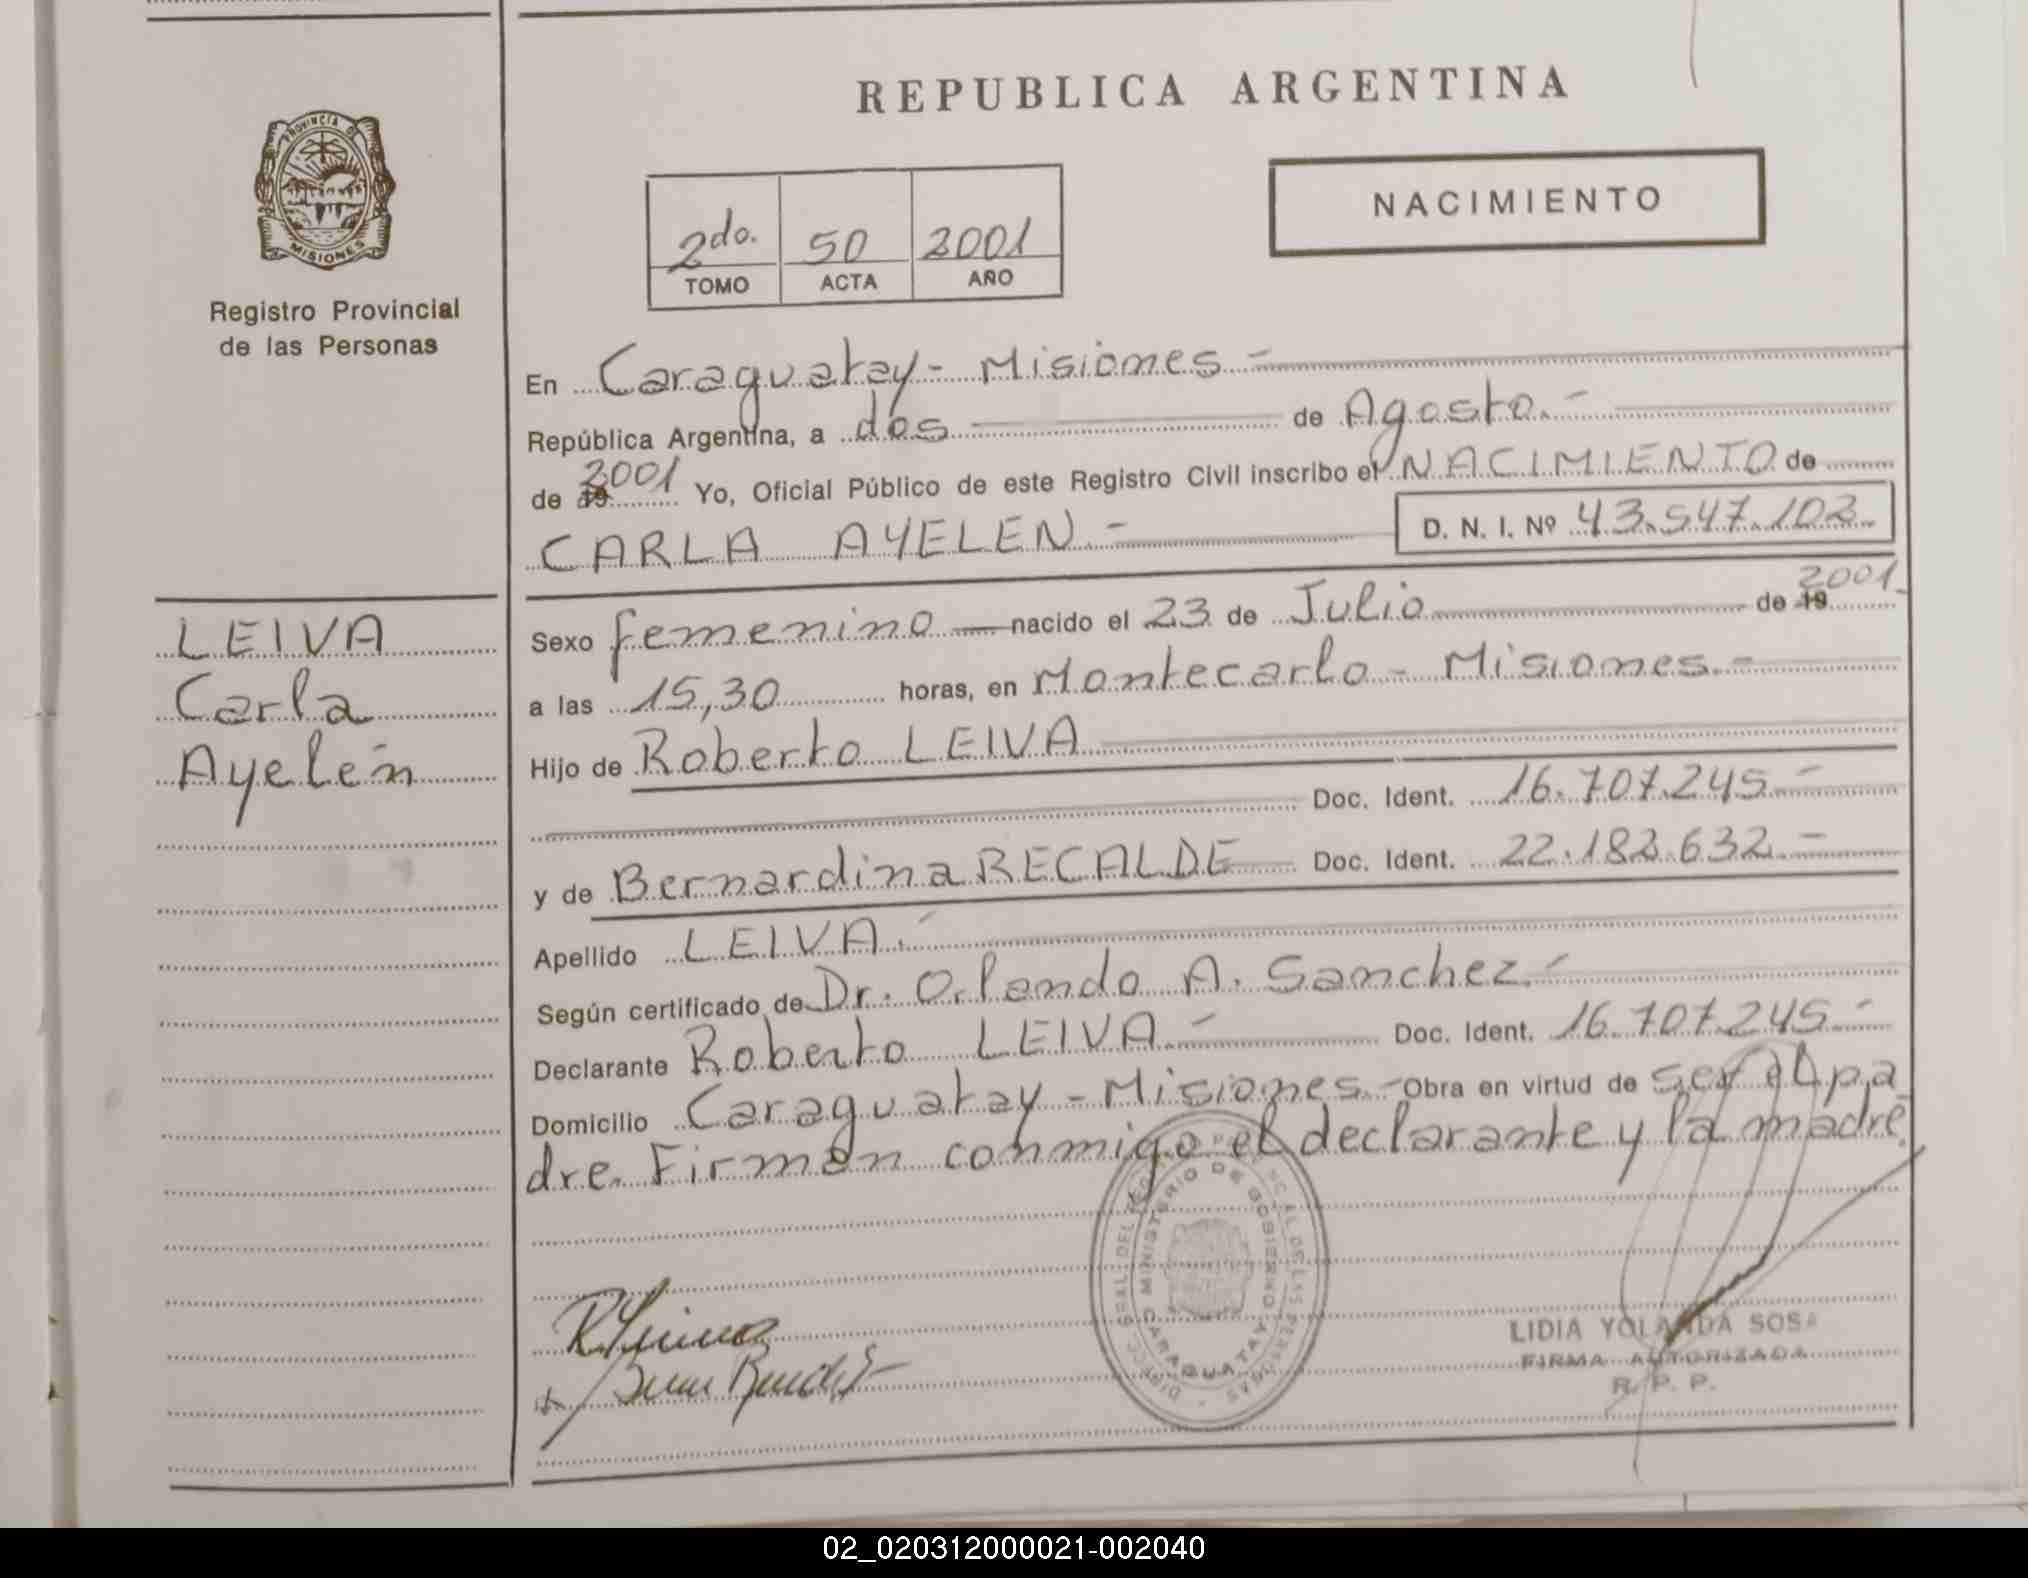 REPUBLICA ARGENTINA
PROVINCIA DE
MISIONES
Registro Provincial
de las Personas
2do. 50 2001
TOMO ACTA AÑO
NACIMIENTO
En Caraguatay - Misiones -
República Argentina, a dos de Agosto. -
de 19 2001 Yo, Oficial Público de este Registro Civil inscribo el NACIMIENTO de
CARLA AYELEN - D. N. I. Nº 43.547.102
LEIVA
Carla
Ayelén
Sexo femenino nacido el 23 de Julio de 19 2001
a las 15,30 horas, en Montecarlo - Misiones. -
Hijo de Roberto LEIVA
Doc. Ident. 16.707.245 -
y de Bernardina RECALDE Doc. Ident. 22.182.632 -
Apellido LEIVA. -
Según certificado de Dr. Orlando A. Sanchez -
Declarante Roberto LEIVA. - Doc. Ident. 16.707.245 -
Domicilio Caraguatay - Misiones. - Obra en virtud de ser el pa
dre. Firman conmigo el declarante y la madre.
MINISTERIO DE GOBIERNO
CARAGUATAY
LIDIA YOLANDA SOSA
FIRMA AUTORIZADA
R. P. P.
02_020312000021-002040